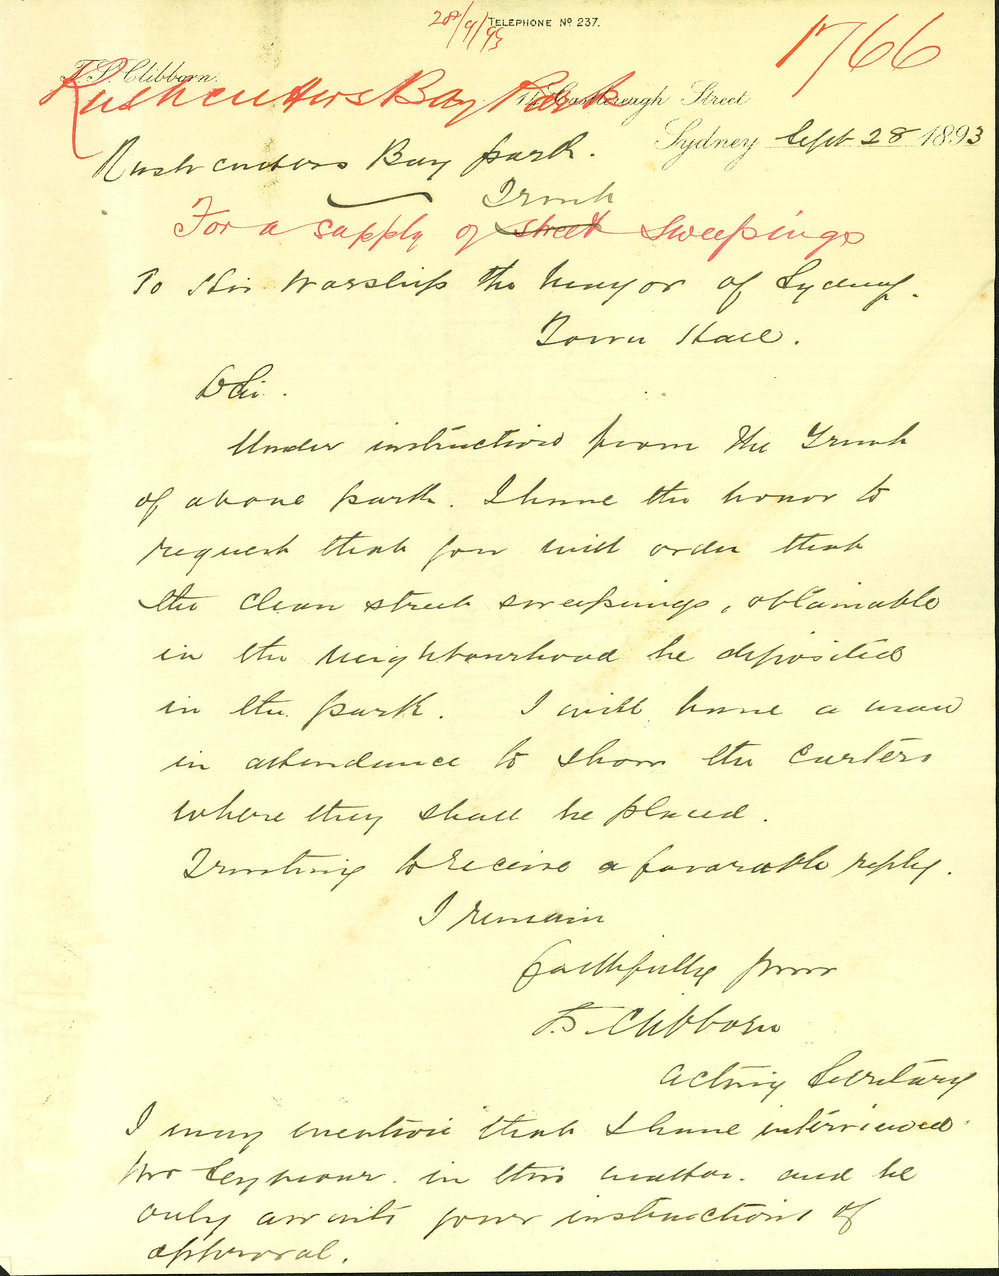 28/9/93
TELEPHONE Nº 237.
1766
T. S. Clibborn.
Rushcutters Bay Park
Castlereagh Street
Sydney Sept 28 1893
Rushcutters Bay park.
Trunk
For a supply of street Sweepings
To His Worship the Mayor of Sydney.
Town Hall.
D Sir.
Under instructions from the Trust
of above park. I have the honor to
request that you will order that
the clean street sweepings, obtainable
in the neighbourhood be deposited
in the park. I will have a man
in attendance to show the carters
where they shall be placed.
Trusting to receive a favorable reply.
I remain
faithfully yours
T S Clibborn
Acting Secretary
I may mention that I have interviewed
Mr Seymour. in this matter. and he
only awaits your instructions of
approval.